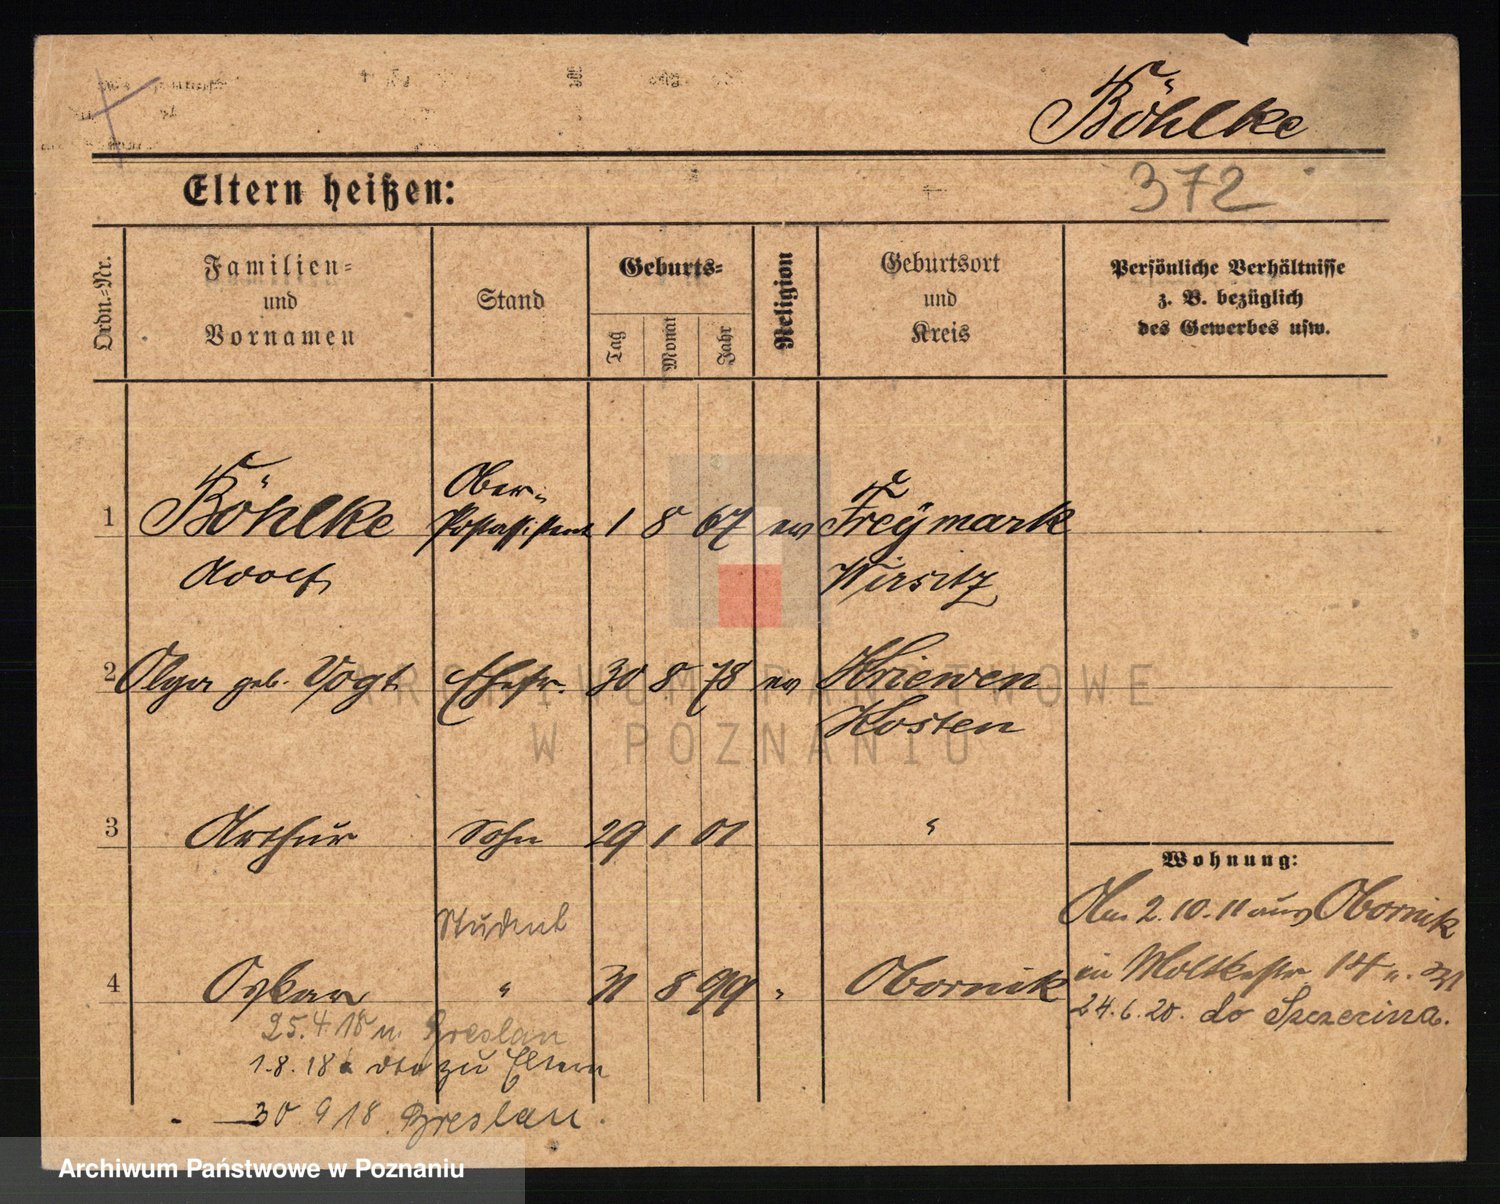 Böhlke
372
Eltern heißen:
Ordn.-Nr.
Familien-
und
Vornamen
Stand
Geburts-
Tag
Monat
Jahr
Religion
Geburtsort
und
Kreis
Persönliche Verhältnisse
z. B. bezüglich
des Gewerbes usw.
1 Böhlke Ober- 1 8 67 ev Freymark
Adolf Postassistent Wirsitz
2 Olga geb. Vogt Ehefr. 30 8 78 ev Kriewen
Kosten
3 Arthur Sohn 29 1 01 "
Wohnung:
Student
Am 2.10.11 aus Obornik
4 Oskar " 31 8 99 " Obornik
in Moltkestr 14
25.4.18 n. Breslau
24.6.20. do Szczecina.
1.8.18 dto zu Eltern
30 9 18 Breslau.
ARCHIWUM PAŃSTWOWE
W POZNANIU
Archiwum Państwowe w Poznaniu